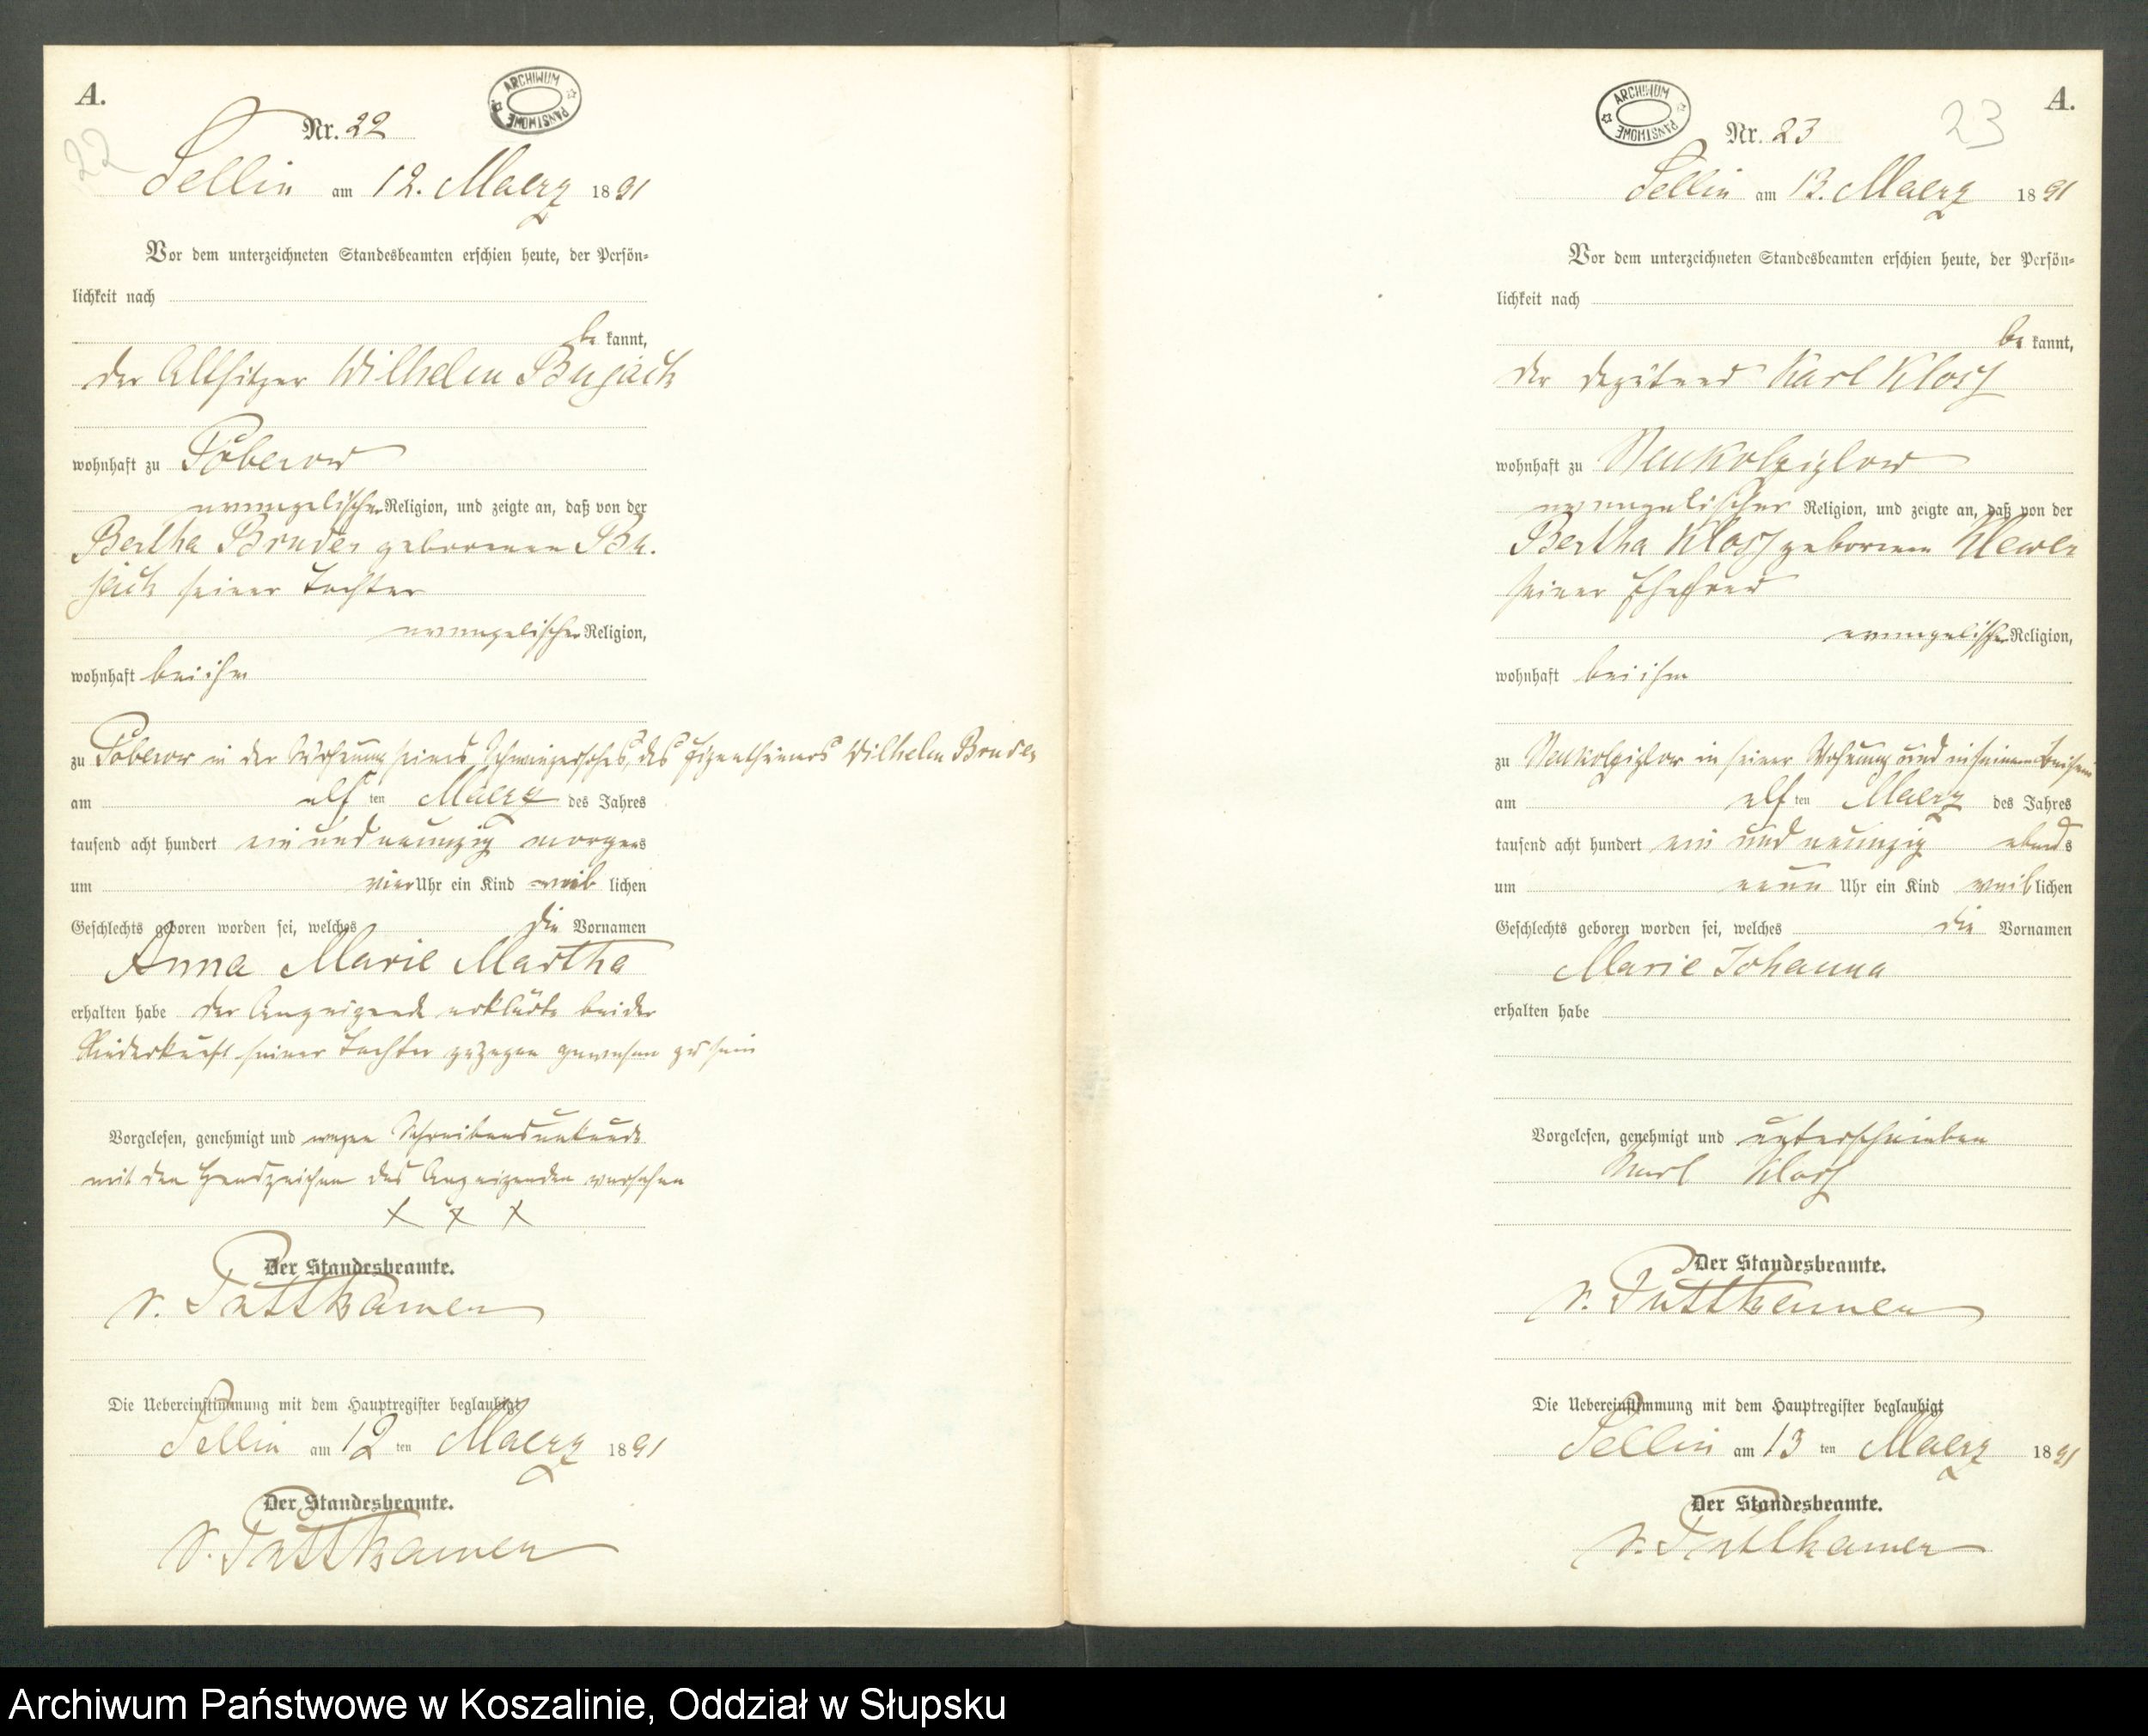 A.
ARCHIWUM PAŃSTWOWE
22
Nr. 22
Sellin am 12. Maerz 1891
Vor dem unterzeichneten Standesbeamten erschien heute, der Persön-
lichkeit nach
be kannt,
der Altsitzer Wilhelm Bujack
wohnhaft zu Poberow
evangelischer Religion, und zeigte an, daß von der
Bertha Bruder geborenen Bu-
jack seiner Tochter
evangelischer Religion,
wohnhaft bei ihm
zu Poberow in der Wohnung seines Schwiegersohes, des Eigenthümers Wilhelm Bruder
am elf ten Maerz des Jahres
tausend acht hundert ein und neunzig morgens
um vier Uhr ein Kind weib lichen
Geschlechts geboren worden sei, welches die Vornamen
Anna Marie Martha
erhalten habe der Anzeigende erklärte bei der
Niederkunft seiner Tochter zugegen gewesen zu sein
Vorgelesen, genehmigt und wegen Schreibensunkunde
mit den Handzeichen des Anzeigenden versehen
x x x
Der Standesbeamte.
v. Puttkamer
Die Uebereinstimmung mit dem Hauptregister beglaubigt
Sellin am 12 ten Maerz 1891
Der Standesbeamte.
v. Puttkamer
A.
ARCHIWUM PAŃSTWOWE
23
Nr. 23
Sellin am 13. Maerz 1891
Vor dem unterzeichneten Standesbeamten erschien heute, der Persön-
lichkeit nach
be kannt,
der Deputand Karl Kloss
wohnhaft zu Neukolziglow
evangelischer Religion, und zeigte an, daß von der
Bertha Kloss geborenen
seiner Ehefrau
evangelischer Religion,
wohnhaft bei ihm
zu Neukolziglow in seiner Wohnung und in seinem Beisein
am elf ten Maerz des Jahres
tausend acht hundert ein und neunzig abends
um neun Uhr ein Kind weib lichen
Geschlechts geboren worden sei, welches die Vornamen
Marie Johanna
erhalten habe
Vorgelesen, genehmigt und unterschrieben
Karl Kloss
Der Standesbeamte.
v. Puttkamer
Die Uebereinstimmung mit dem Hauptregister beglaubigt
Sellin am 13 ten Maerz 1891
Der Standesbeamte.
v. Puttkamer
Archiwum Państwowe w Koszalinie, Oddział w Słupsku